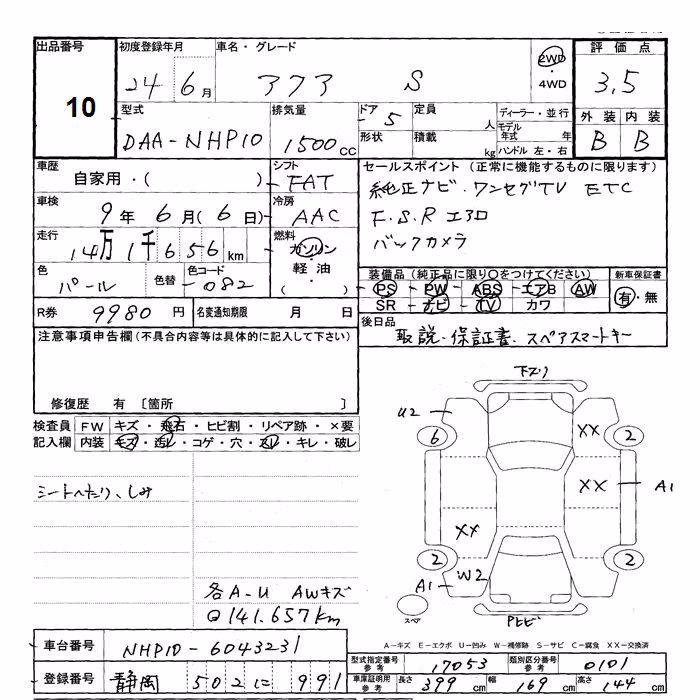 出品番号 初度登録年月 車名・グレード 評価点
10 24 6月 アクア S 2WD・4WD 3.5
型式 排気量 ドア 5 定員 人 ディーラー・並行 外装 内装
DAA-NHP10 1500cc 形状 積載 kg モデル年式 年 ハンドル 左・右 B B
車歴 シフト セールスポイント (正常に機能するものに限ります)
自家用・( ) FAT 純正ナビ・ワンセグTV ETC
車検 冷房 F.S.Rエアロ
9年 6月(6日) AAC バックカメラ
走行 燃料
14万1千656km ガソリン・軽油・( )
色 色替 色コード 装備品 (純正品に限り○をつけてください) 新車保証書
パール 082 PS PW ABS エアB AW 有・無
SR ナビ TV カワ
R券 9980円 名変通知期限 月 日 後日品
取説・保証書・スペアスマートキー
注意事項申告欄(不具合内容等は具体的に記入して下さい)
修復歴 有 〔箇所 〕
検査員記入欄 FW キズ・飛石・ヒビ割・リペア跡・×要
内装 キズ・汚レ・コゲ・穴・スレ・キレ・破レ
シートへたり、しみ
各A-U AWキズ
141.657km
下スリ
U2 XX
6 2
XX A1
XX
2 2
A1 W2
スペア
A-キズ E-エクボ U-凹み W-補修跡 S-サビ C-腐食 XX-交換済
車台番号 NHP10-6043231
型式指定番号参考 17053 類別区分番号参考 0101
登録番号 静岡 502 に 991
車庫証明用参考 長さ 399cm 幅 169cm 高さ 144cm